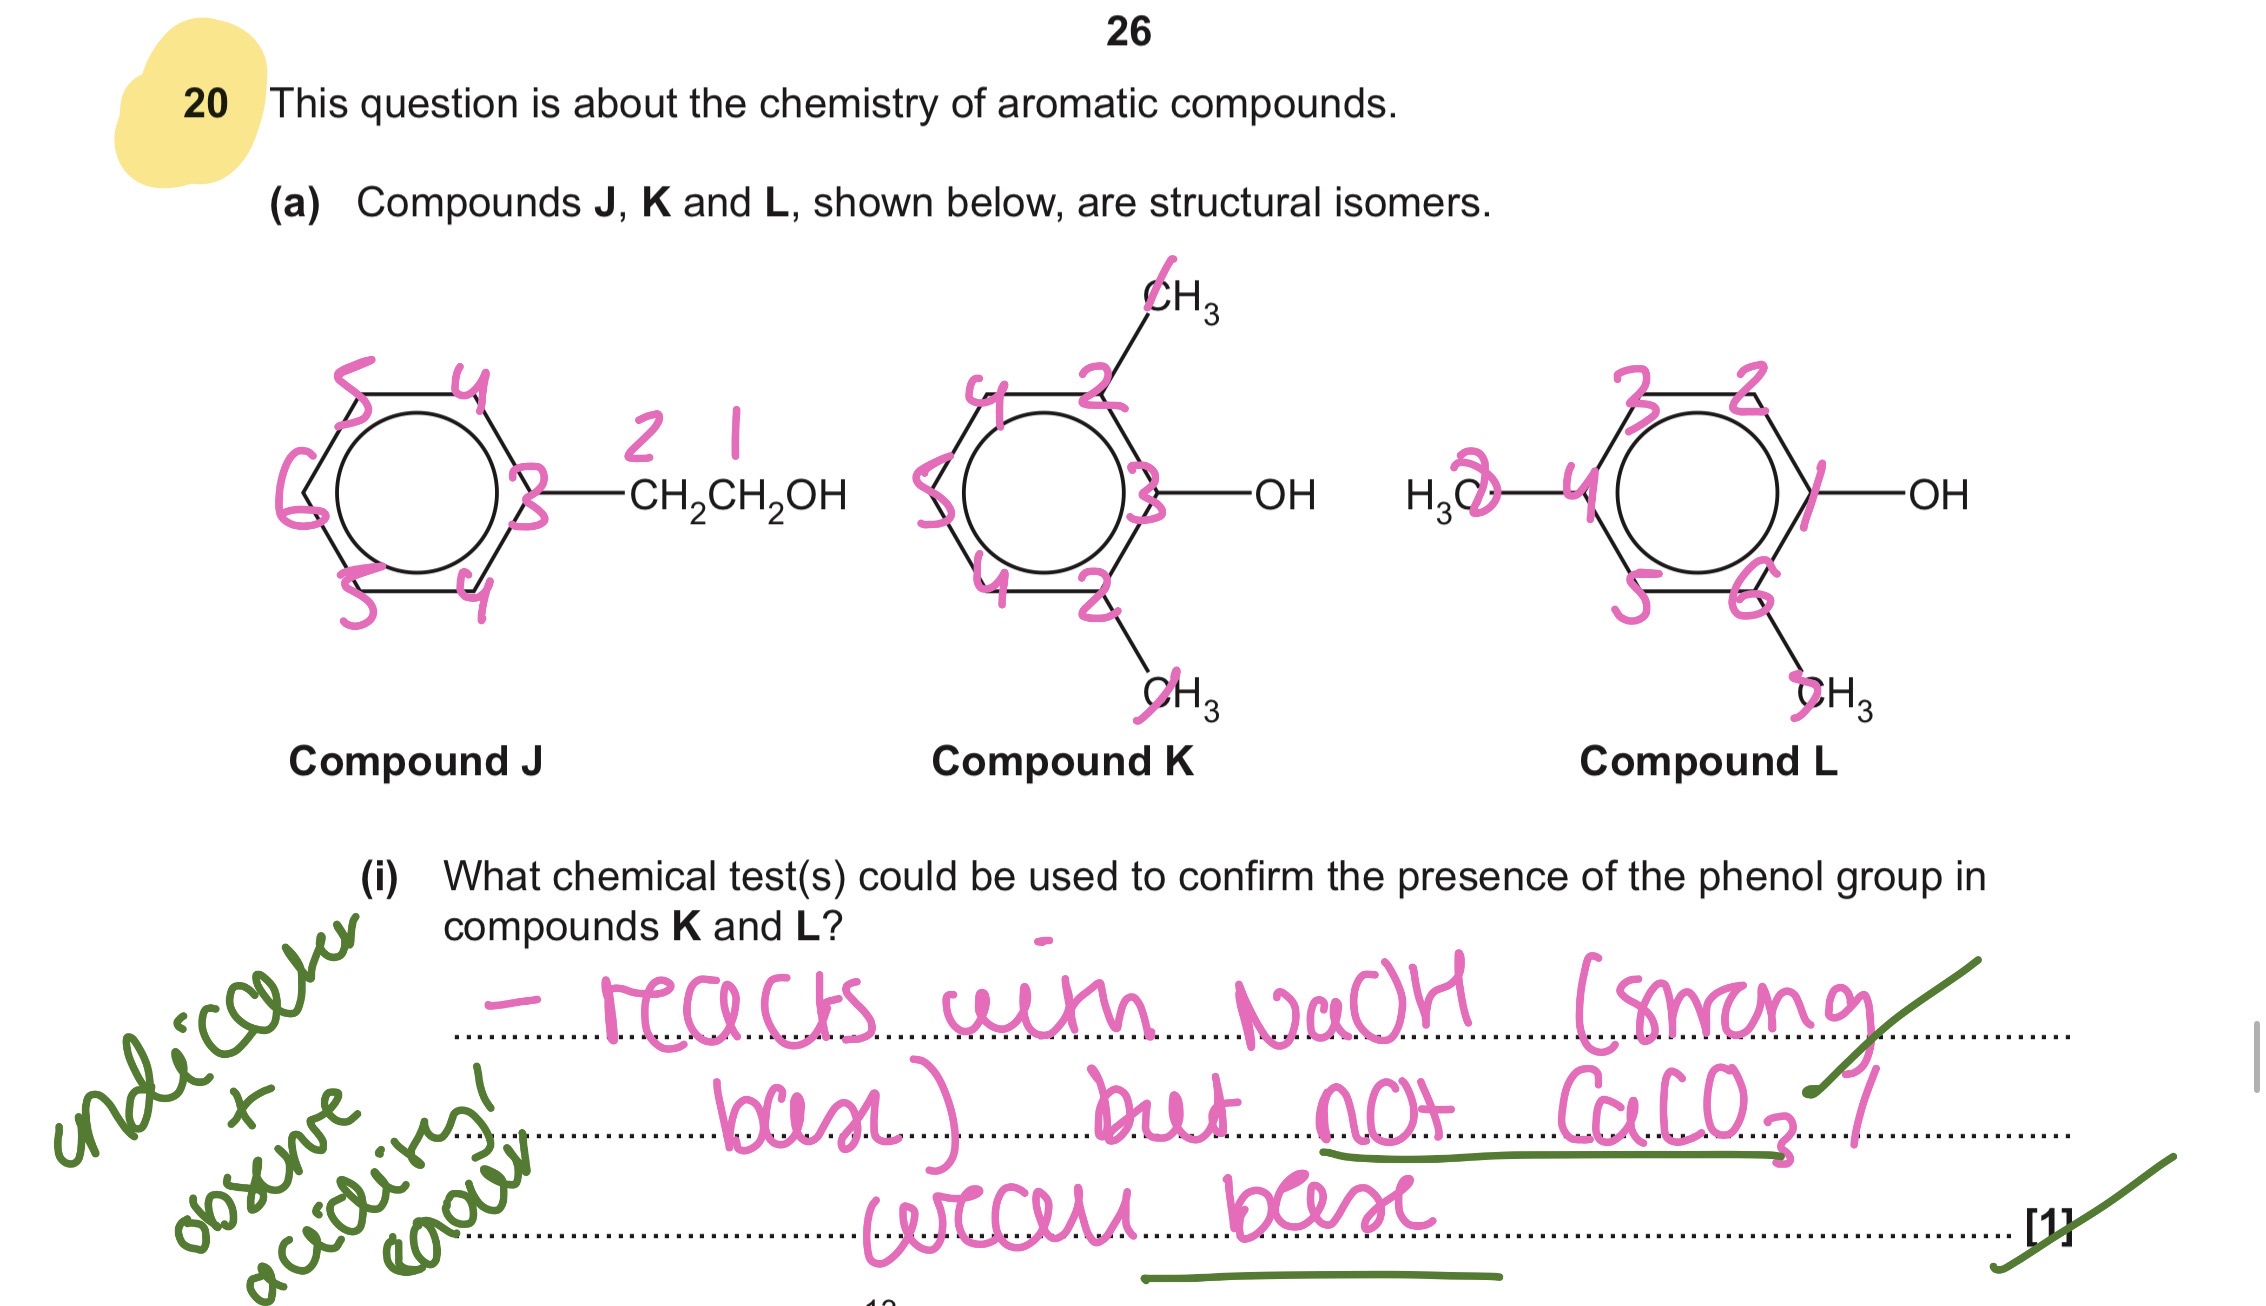 26
20 This question is about the chemistry of aromatic compounds.
(a) Compounds J, K and L, shown below, are structural isomers.
CH3
5 4 4 2 3 2
2 1
6 3 CH2CH2OH 5 3 OH H3C 3 4 1 OH
5 4 4 2 5 6
CH3 CH3
Compound J Compound K Compound L
(i) What chemical test(s) could be used to confirm the presence of the phenol group in
compounds K and L?
- reacts with NaOH (strong
base) but not CaCO3 /
weak base
[1]
indicator
+
observe
acidity/
colour